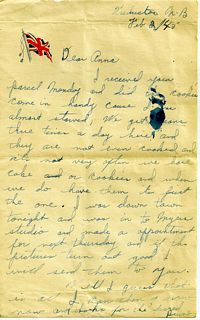 Feb 2/45
Dear Anna
I received your
parcel Monday and did
come in handy cause
almost starved. We get
three times a day here and
they are not even cooked and
its not very often we have
cake and or cookies and when
we do have them its just
the one. I was down town
tonight and was in to Myers
studio and made a appointment
for next thursday and if the
pictures turn out good I
will send them to you.
Well I guess that
is all I
now and